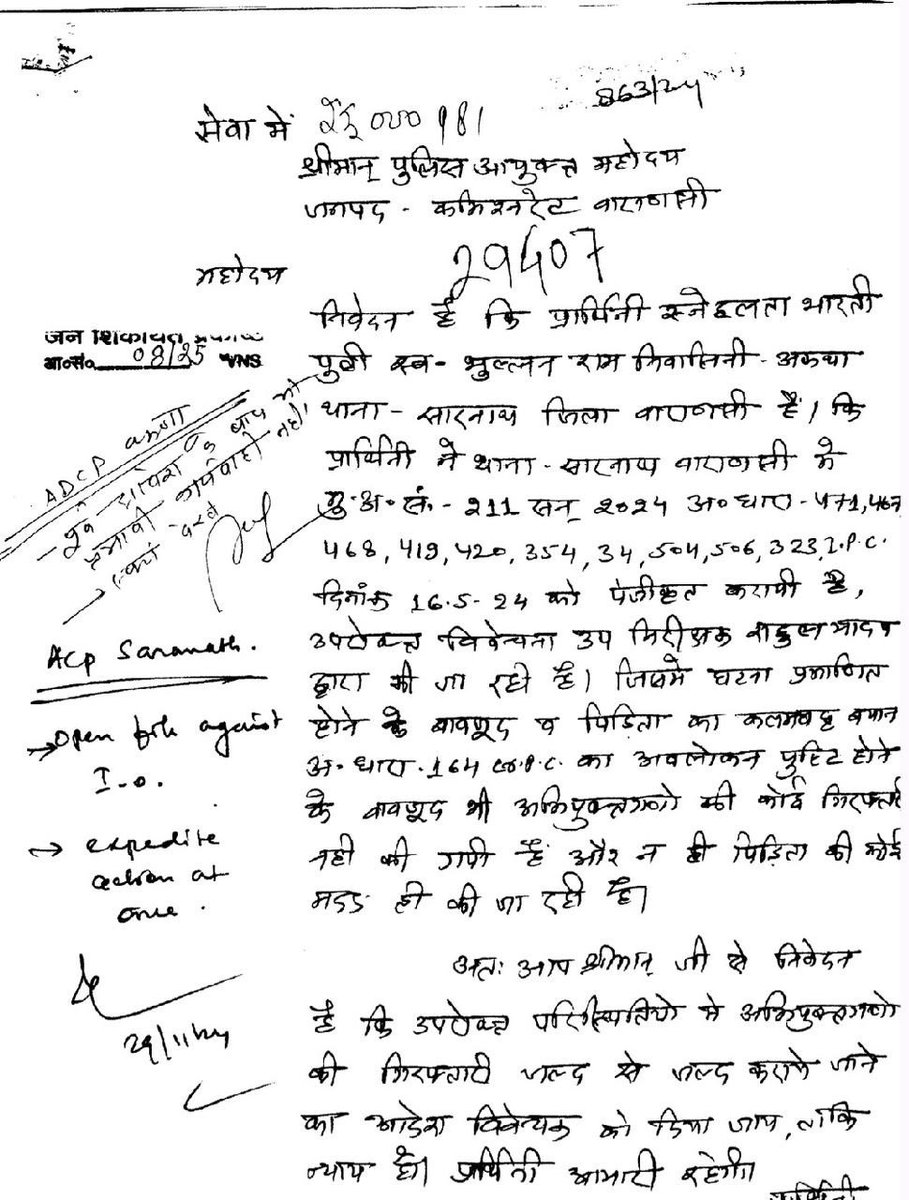 863/24
सेवा में
श्रीमान् पुलिस आयुक्त महोदय
जनपद - कमिश्नरेट वाराणसी
29407
महोदय
निवेदन है कि प्रार्थिनी स्नेहलता भारती
जन शिकायत प्रकोष्ठ
08/25 VNS
पुत्री स्व- भुल्लन राम निवासिनी - अकथा
थाना - सारनाथ जिला वाराणसी है। कि
ADCP वरुणा
प्रार्थिनी ने थाना - सारनाथ वाराणसी में
मु०अ०सं०- 211 सन् 2024 अ० धारा - 471, 467
468, 419, 420, 354, 34, 504, 506, 323, I.P.C.
दिनांक 16-5-24 को पंजीकृत करायी है,
उपरोक्त विवेचना उप निरीक्षक राहुल यादव
ACP Saranath.
द्वारा की जा रही है। जिसमे घटना प्रमाणित
होने के बावजूद व पिड़िता का कलमबद्ध बयान
→ Open file against
I.O.
अ० धारा - 164 का अवलोकन पुष्टि होने
के बावजूद भी अभियुक्तगणो की कोई गिरफ्तारी
→ expedite
action at
once.
नही की गयी है और न ही पिड़िता की कोई
मदद ही की जा रही है।
अतः आप श्रीमान् जी से निवेदन
29/11/24
है कि उपरोक्त परिस्थितियो मे अभियुक्तगणो
की गिरफ्तारी जल्द से जल्द कराने जाने
का आदेश विवेचक को दिया जाय, ताकि
न्याय हो। प्रार्थिनी आभारी रहेगी।
प्रार्थिनी